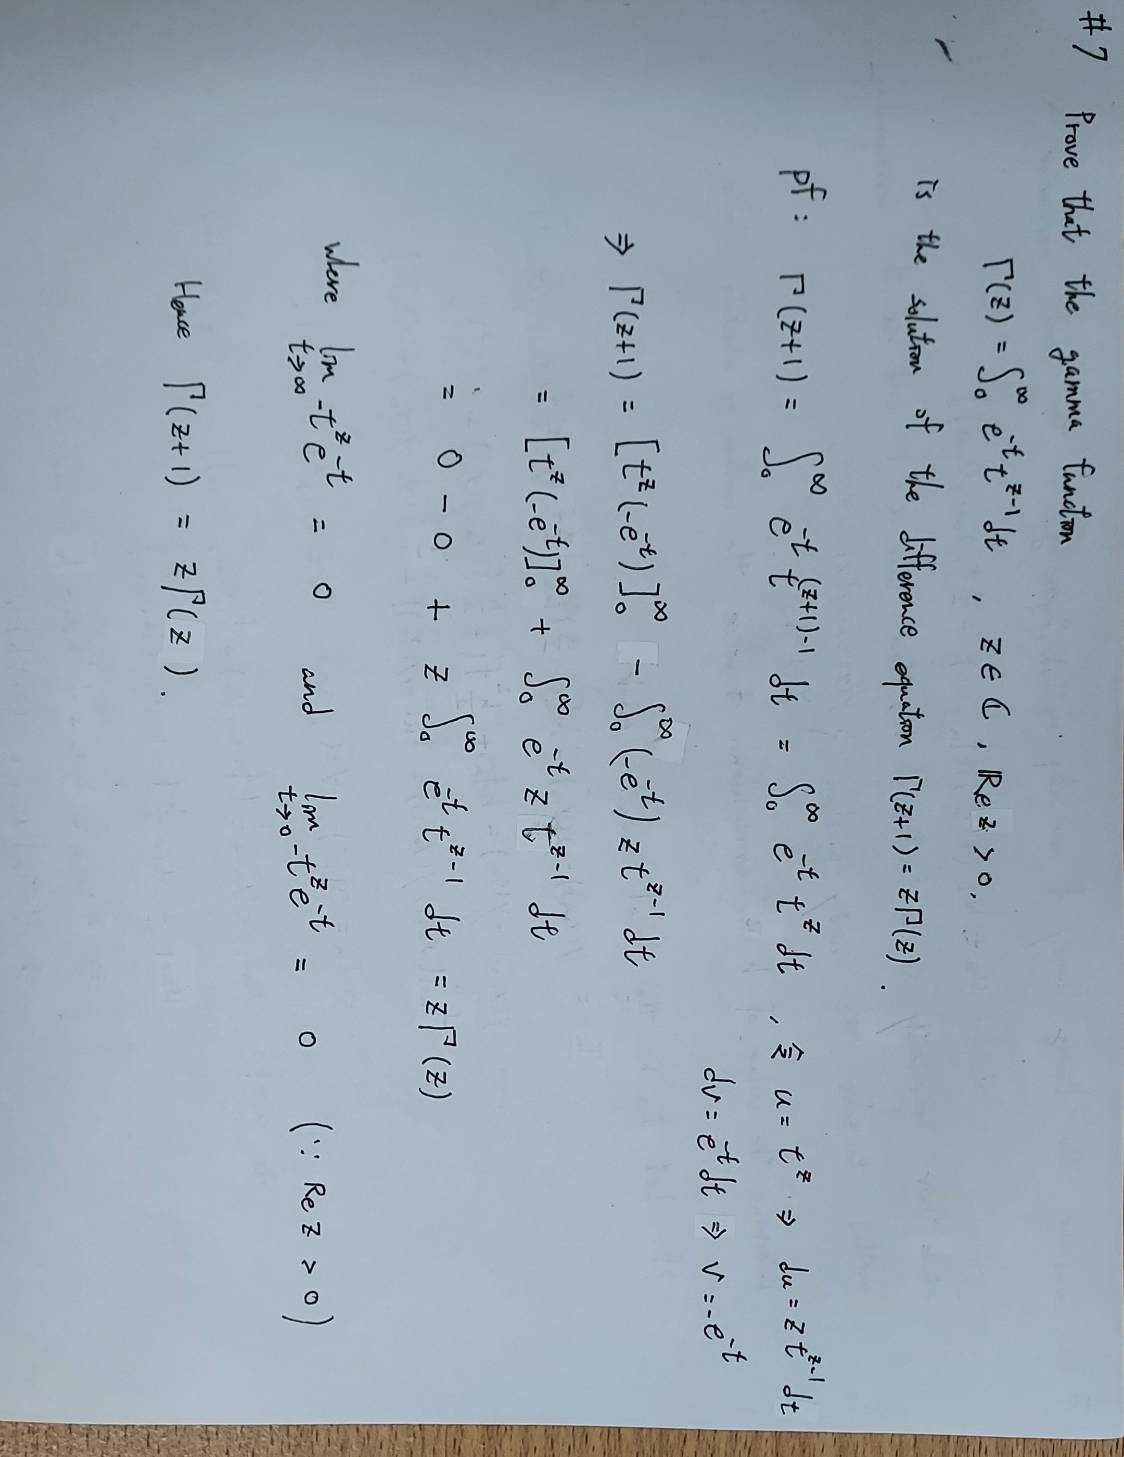 #7 Prove that the gamma function
Γ(z) = ∫₀^∞ e^{-t} t^{z-1} dt , z ∈ ℂ, Re z > 0.
is the solution of the difference equation Γ(z+1) = zΓ(z).
pf: Γ(z+1) = ∫₀^∞ e^{-t} t^{(z+1)-1} dt = ∫₀^∞ e^{-t} t^z dt , 令 u = t^z ⇒ du = z t^{z-1} dt
dv = e^{-t} dt ⇒ v = -e^{-t}
⇒ Γ(z+1) = [t^z (-e^{-t})]₀^∞ - ∫₀^∞ (-e^{-t}) z t^{z-1} dt
= [t^z (-e^{-t})]₀^∞ + ∫₀^∞ e^{-t} z t^{z-1} dt
= 0 - 0 + z ∫₀^∞ e^{-t} t^{z-1} dt = zΓ(z)
where lim_{t→∞} -t^z e^{-t} = 0 and lim_{t→0} -t^z e^{-t} = 0 (∵ Re z > 0)
Hence Γ(z+1) = zΓ(z).